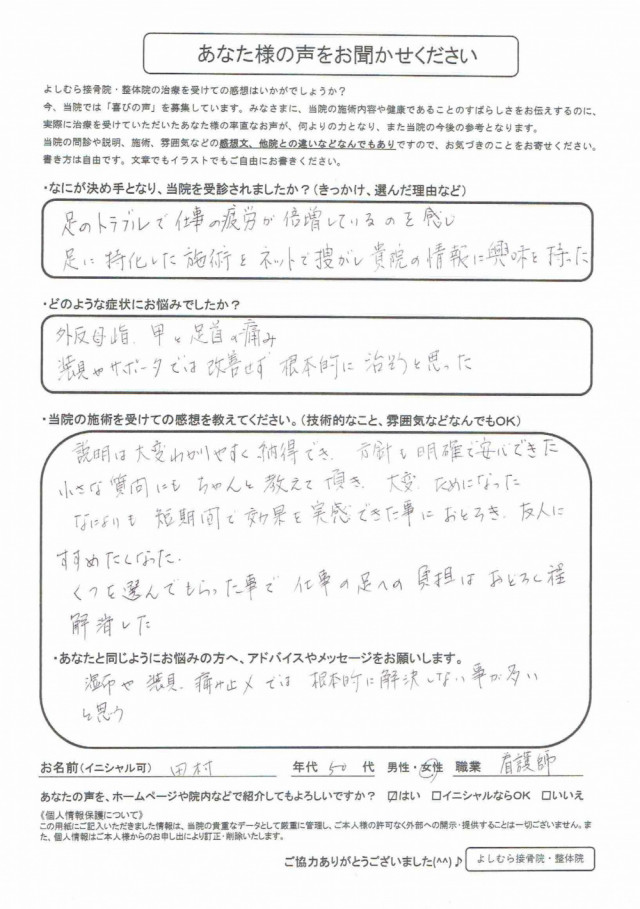 あなた様の声をお聞かせください
よしむら接骨院・整体院の治療を受けての感想はいかがでしょうか？
今、当院では「喜びの声」を募集しています。みなさまに、当院の施術内容や健康であることのすばらしさをお伝えするのに、
実際に治療を受けていただいたあなた様の率直なお声が、何よりの力となり、また当院の今後の参考となります。
当院の問診や説明、施術、雰囲気などの感想文、他院との違いなどなんでもありですので、お気づきのことをお寄せください。
書き方は自由です。文章でもイラストでもご自由にお書きください。
・なにが決め手となり、当院を受診されましたか？（きっかけ、選んだ理由など）
足のトラブルで仕事の疲労が倍増しているのを感じ
足に特化した施術をネットで捜がし貴院の情報に興味を持った
・どのような症状にお悩みでしたか？
外反母歯、甲と足首の痛み
装具やサポータでは改善せず根本的に治そうと思った
・当院の施術を受けての感想を教えてください。（技術的なこと、雰囲気などなんでもOK）
説明は大変わかりやすく納得でき、方針も明確で安心できた
小さな質問にもちゃんと教えて頂き、大変ためになった
なによりも短期間で効果を実感できた事におどろき、友人に
すすめたくなった。
くつを選んでもらった事で仕事の足への負担はおどろく程
解消した
・あなたと同じようにお悩みの方へ、アドバイスやメッセージをお願いします。
湿布や装具、痛み止メでは根本的に解決しない事が多い
と思う
お名前（イニシャル可） 田村 年代 50 代 男性・女性 職業 看護師
あなたの声を、ホームページや院内などで紹介してもよろしいですか？ ☑はい □イニシャルならOK □いいえ
《個人情報保護について》
この用紙にご記入いただきました情報は、当院の貴重なデータとして厳重に管理し、ご本人様の許可なく外部への開示・提供することは一切ございません。ま
た、個人情報はご本人様からのお申し出により訂正・削除いたします。
ご協力ありがとうございました(^^)♪ よしむら接骨院・整体院